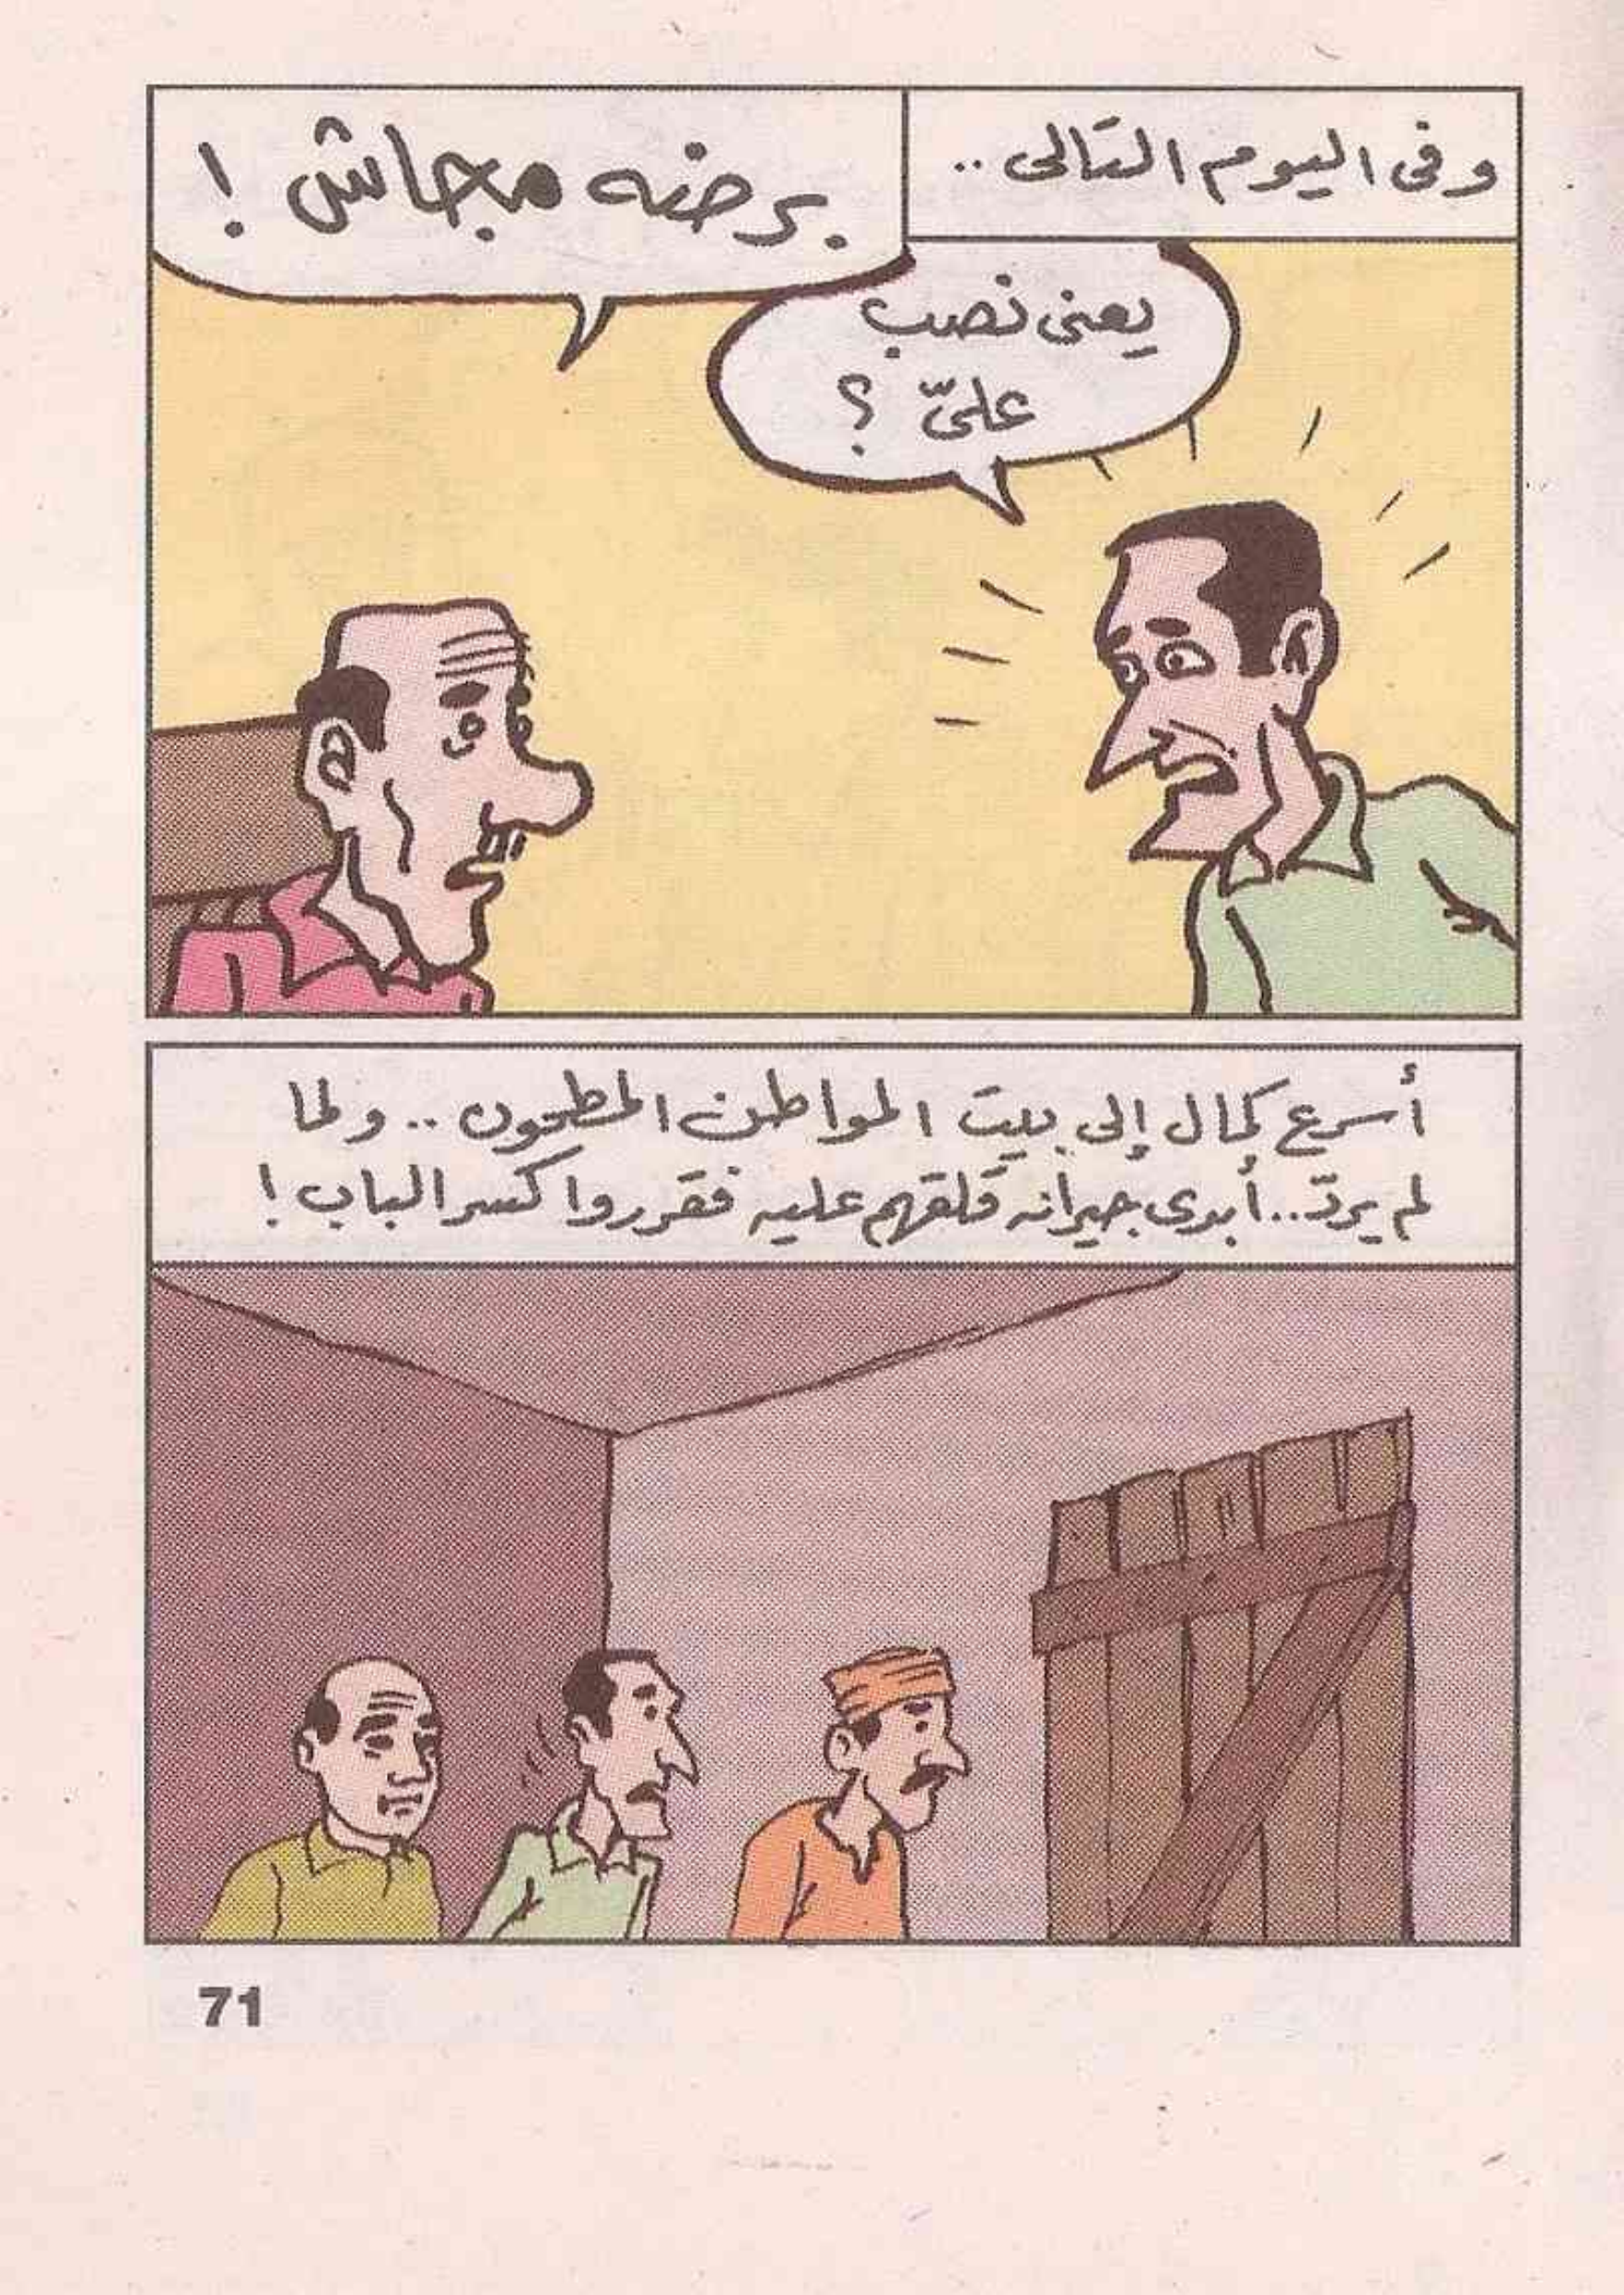 وفى اليوم التالى ..
برضه مجاش !
يعنى نصب
علىّ ؟
أسرع كمال إلى بيت المواطن المطحون .. ولما
لم يردّ .. أبدى جيرانه قلقهم عليه فقرروا كسر الباب !
71